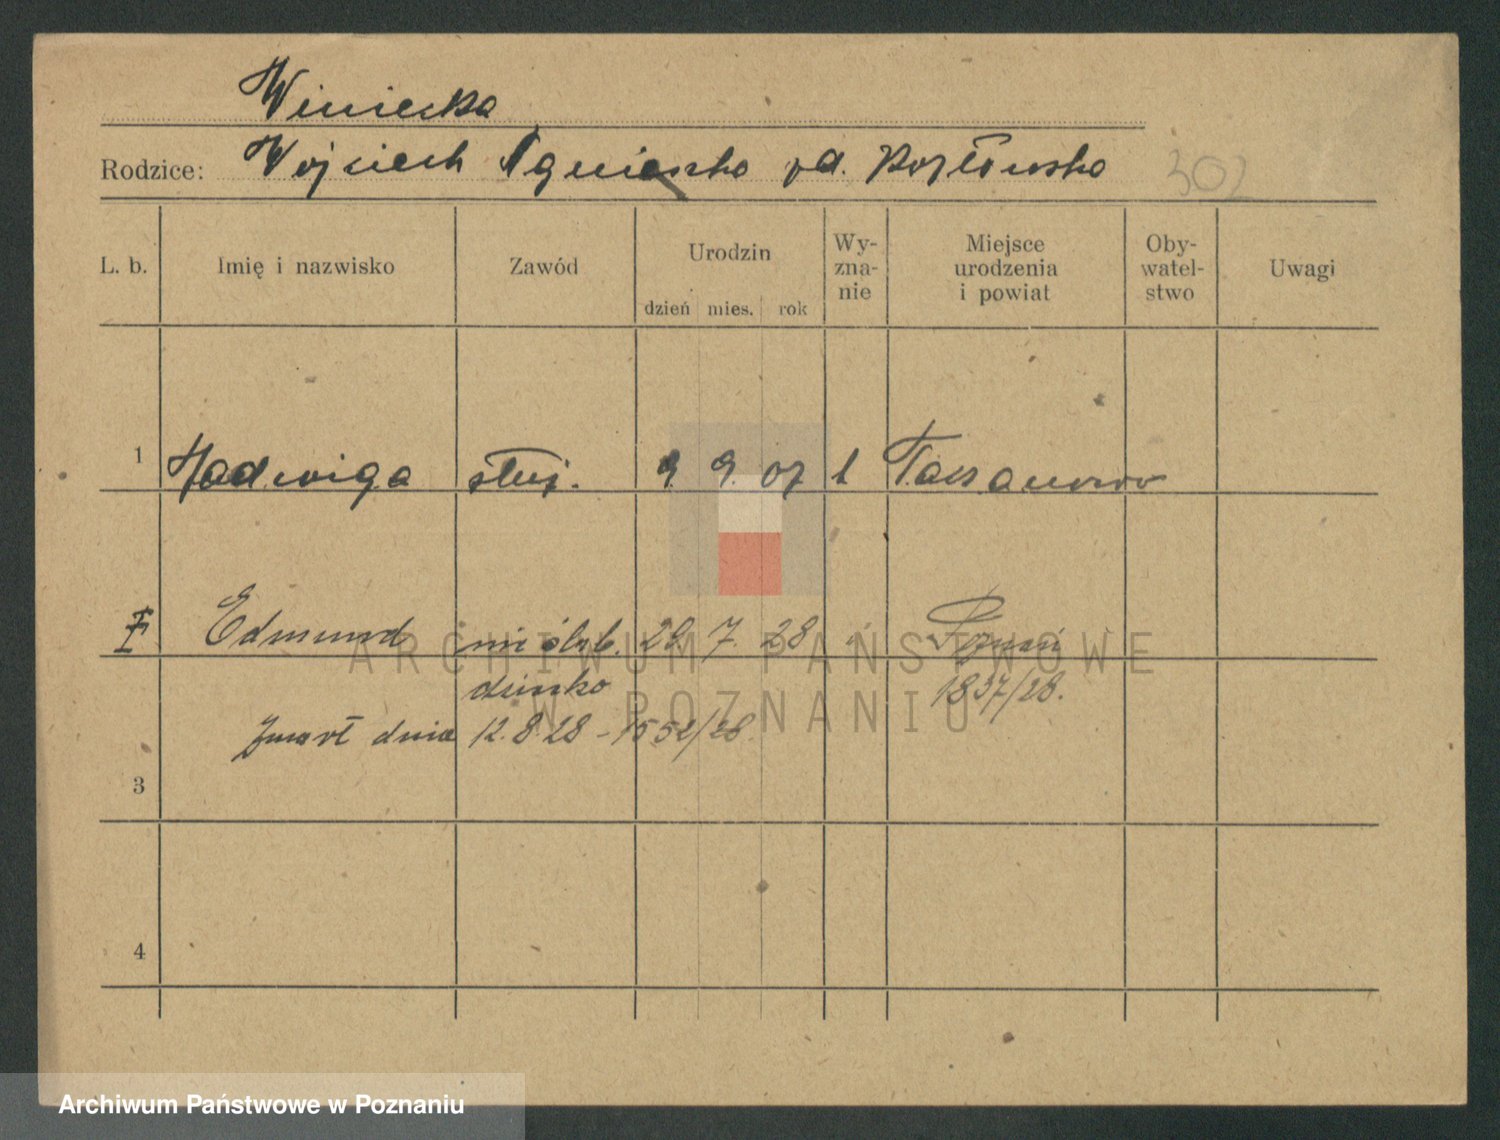 Winiecka
Rodzice: Wojciech Agnieszka zd. Kozłowska 302
L. b. Imię i nazwisko Zawód Urodzin dzień mies. rok Wy-zna-nie Miejsce urodzenia i powiat Oby-watel-stwo Uwagi
1 Hadwiga służ. 9. 9. 07 k Taczanowo
Edmund nieślub. 28. 7. 28 Poznań
dziecko 1837/28.
Zmarł dnia 12.8.28 - 1552/28
3
4
ARCHIWUM PAŃSTWOWE
W POZNANIU
Archiwum Państwowe w Poznaniu